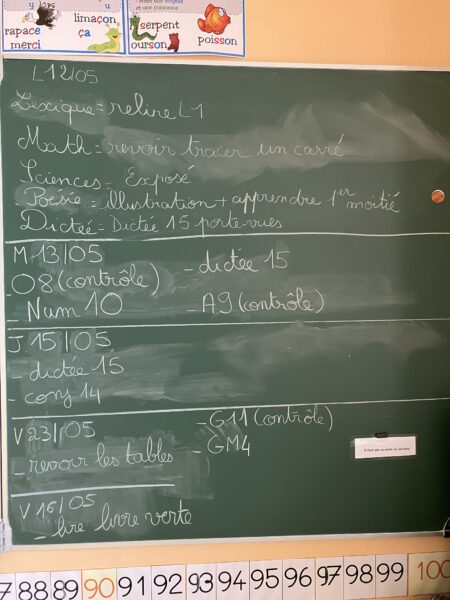 rapace
merci
u
limaçon
ça
et une consonne
serpent
ourson
poisson
L12/05
Lexique = relire L1
Math = revoir tracer un carré
Sciences = Exposé
Poésie = illustration + apprendre 1er moitié
Dictée = Dictée 15 porte-vues
M 13/05
- O8 (contrôle)
- dictée 15
- Num 10
- A9 (contrôle)
J 15/05
- dictée 15
- conj 14
V 23/05
- G11 (contrôle)
- revoir les tables
- GM4
V 16/05
- lire livre verte
7 88 89 90 91 92 93 94 95 96 97 98 99 100